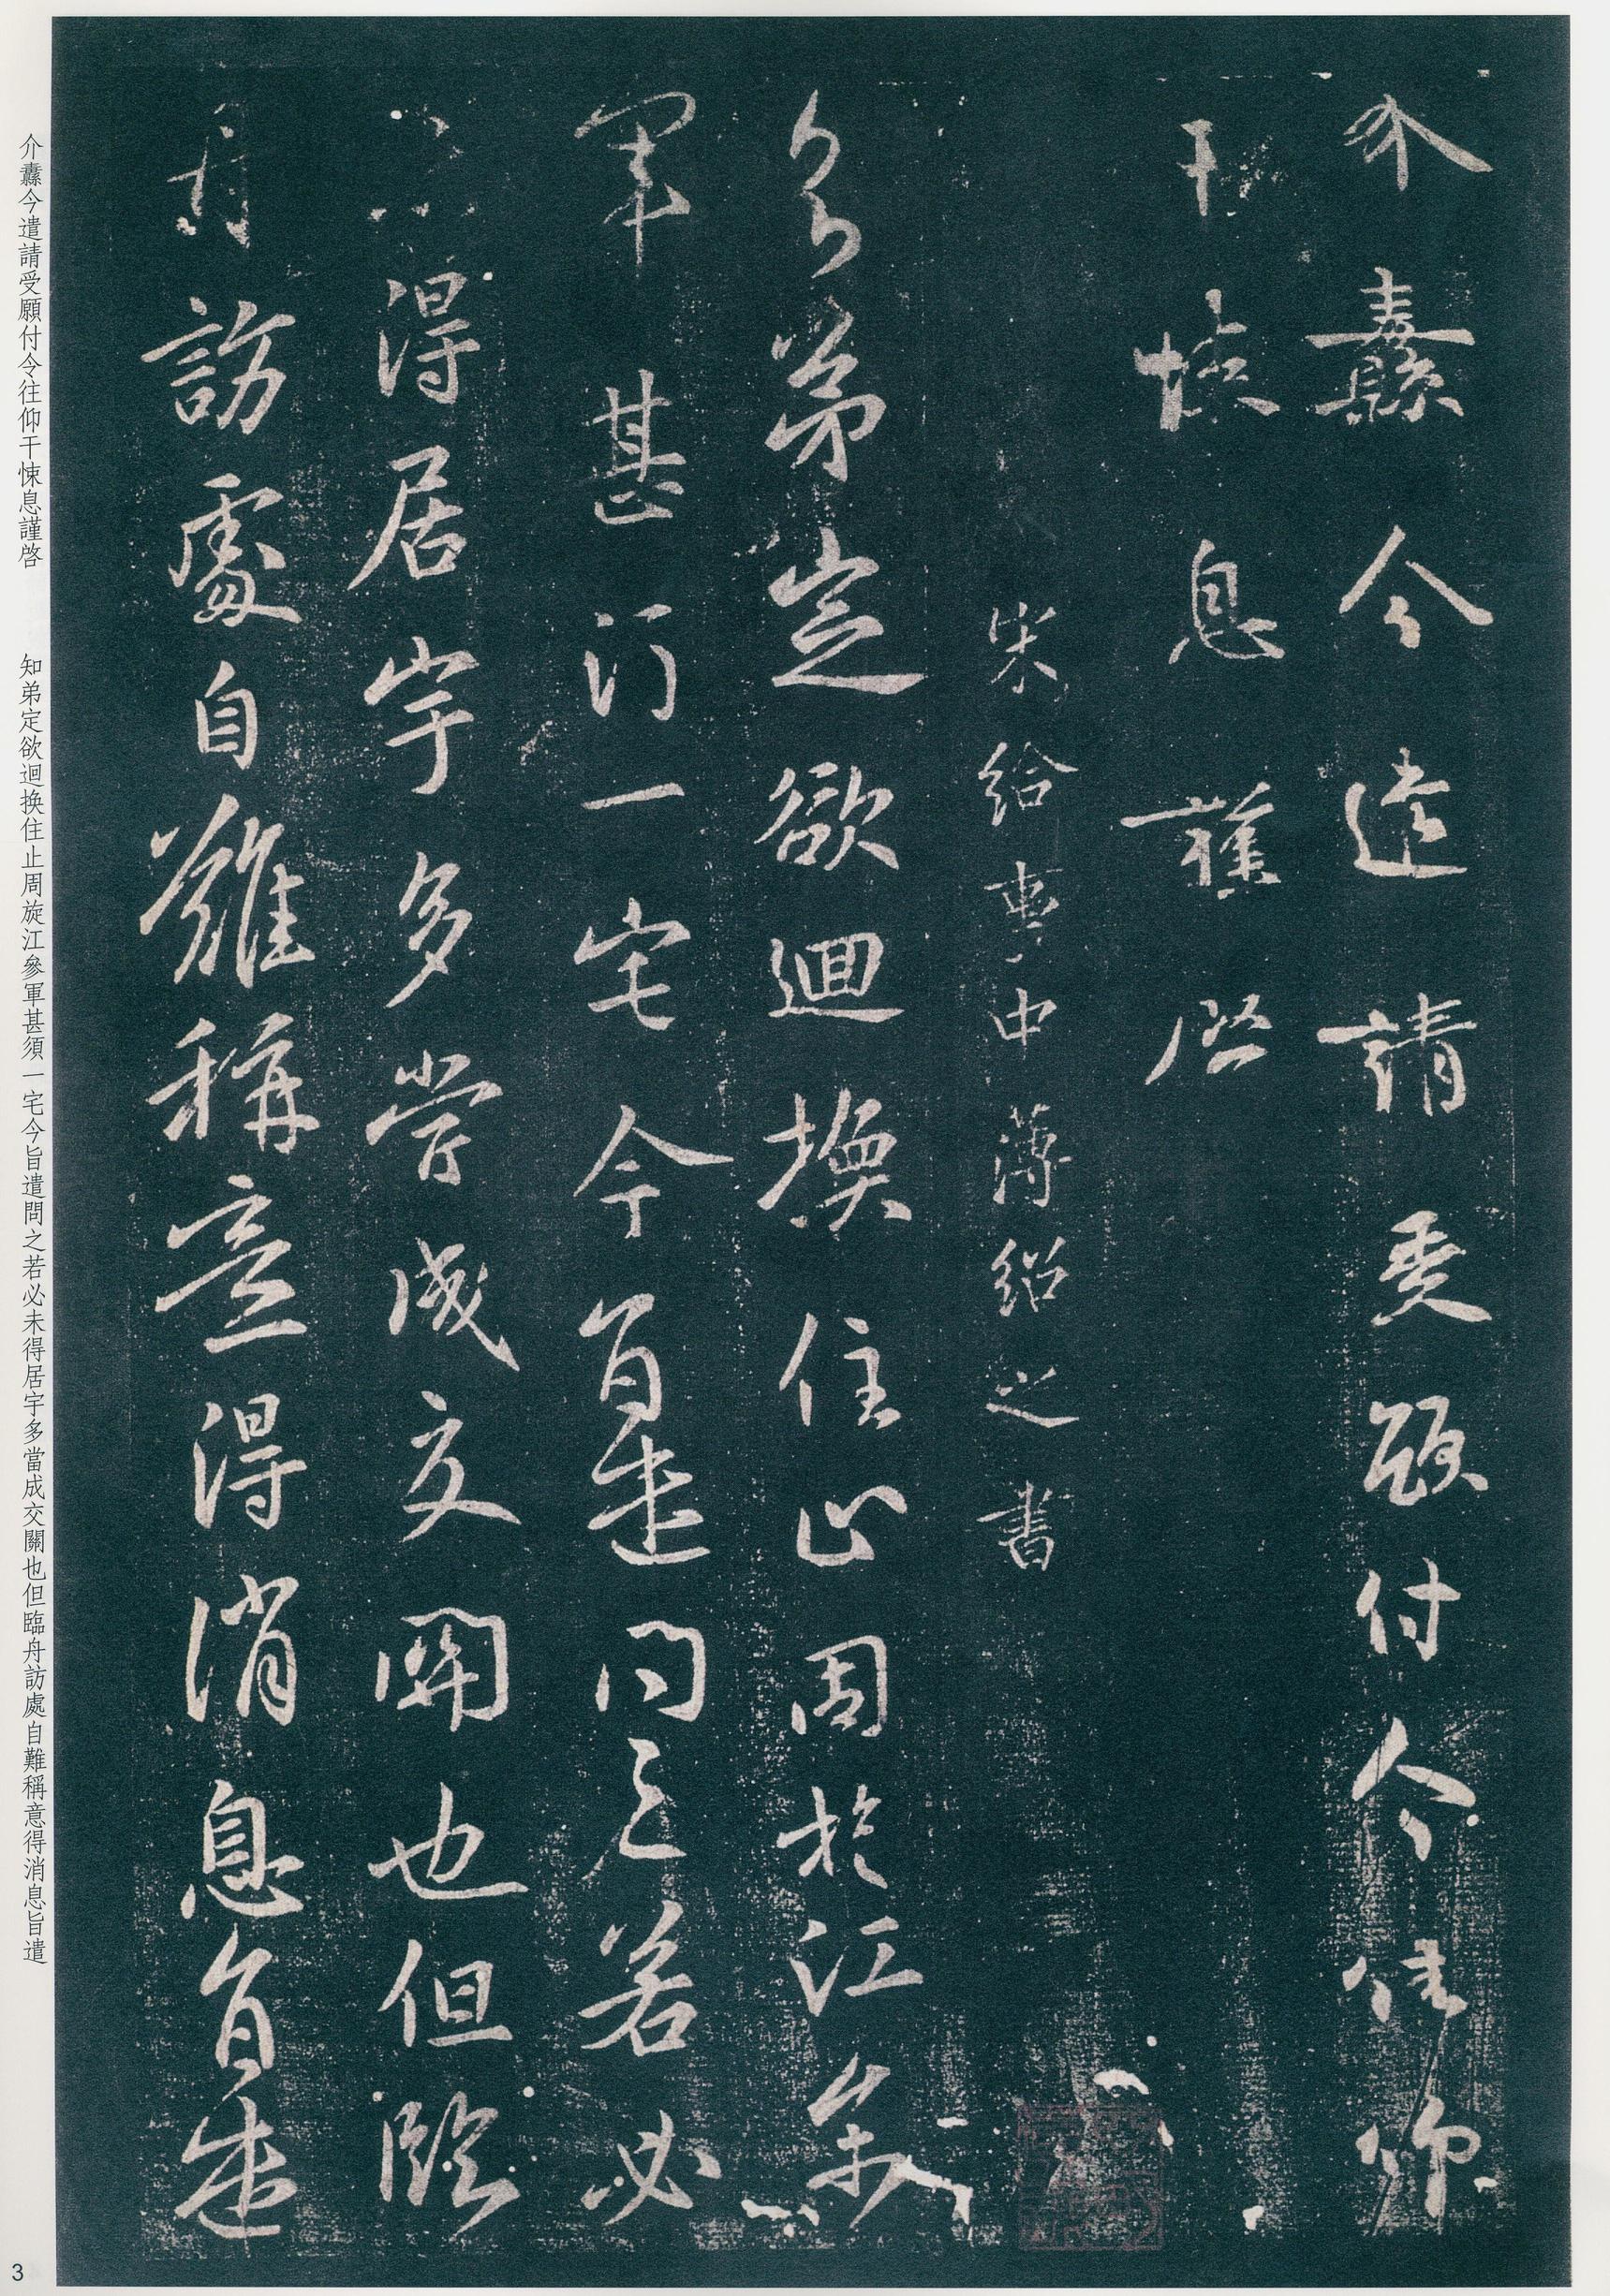 介纛今遣請受願付令往仰
干悚息謹啓
宋給事中薄紹之書
知弟定欲迴換住止周旋江參
軍甚須一宅今旨遣問之若必
得居宇多當成交關也但臨
舟訪處自難稱意得消息旨遣
介纛今遣請受願付令往仰干悚息謹啓 知弟定欲迴換住止周旋江參軍甚須一宅今旨遣問之若必未得居宇多當成交關也但臨舟訪處自難稱意得消息旨遣
3